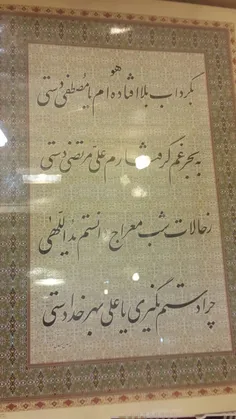 هو
بگرداب بلا افتاده ام یا مصطفی دستی
به بحر غم گرفتارم علی مرتضی دستی
ز حالات شب معراج دانستم ید اللهی
چرا دستم نگیری یا علی بهر خدا دستی